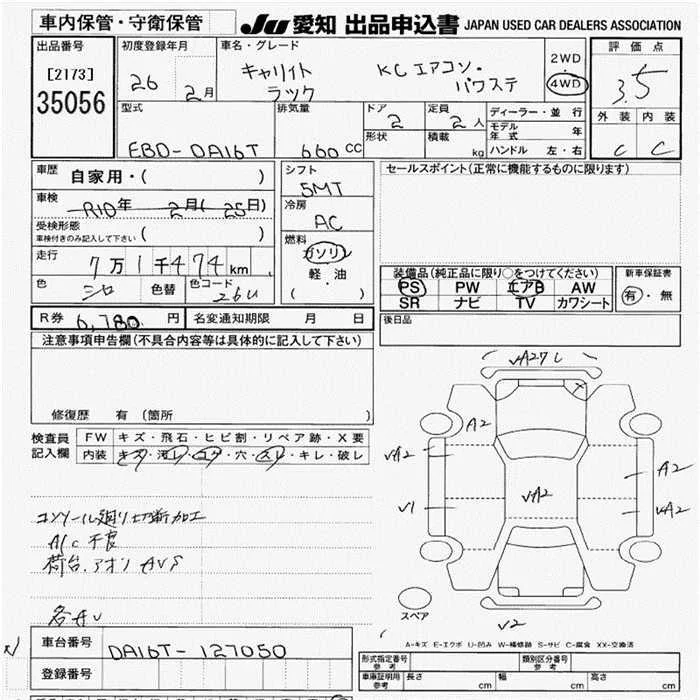 車内保管・守衛保管 JU 愛知 出品申込書 JAPAN USED CAR DEALERS ASSOCIATION
出品番号 初度登録年月 車名・グレード 2WD 評価点
[2173] 26 2月 キャリイト KCエアコン・ 4WD 3.5
35056 ラック パワステ
外装 内装
型式 排気量 ドア 2 定員 2人 ディーラー・並行
EBD-DA16T 660cc 形状 積載 kg モデル年式 年
ハンドル 左・右 C C
車歴 自家用・( ) シフト セールスポイント(正常に機能するものに限ります)
5MT
車検 R10年 2月(25日) 冷房
AC
受検形態
車検付きのみ記入して下さい ( )
燃料
走行 7万1千474km ガソリン
軽・油
( )
装備品(純正品に限り○をつけてください) 新車保証書
PS PW エアB AW 有・無
SR ナビ TV カワシート
色 シロ 色替 色コード 26U
R券 6,780円 名変通知期限 月 日 後日品
注意事項申告欄(不具合内容等は具体的に記入して下さい)
修復歴 有(箇所
検査員 FW キズ・飛石・ヒビ割・リペア跡・X要
記入欄 内装 キズ・汚レ・コゲ・穴・スレ・キレ・破レ
A2
VA2
A2
VA2
V1
VA2
コンソール廻り切断加工
A/C不良
荷台、アオリ AUS
各AU
スペア
V2
A-キズ E-エクボ U-凹み W-補修跡 S-サビ C-腐食 XX-交換済
車台番号 DA16T-127050
登録番号
形式指定番号 参考 類別区分番号 参考
車庫証明用 参考 長さ cm 幅 cm 高さ cm